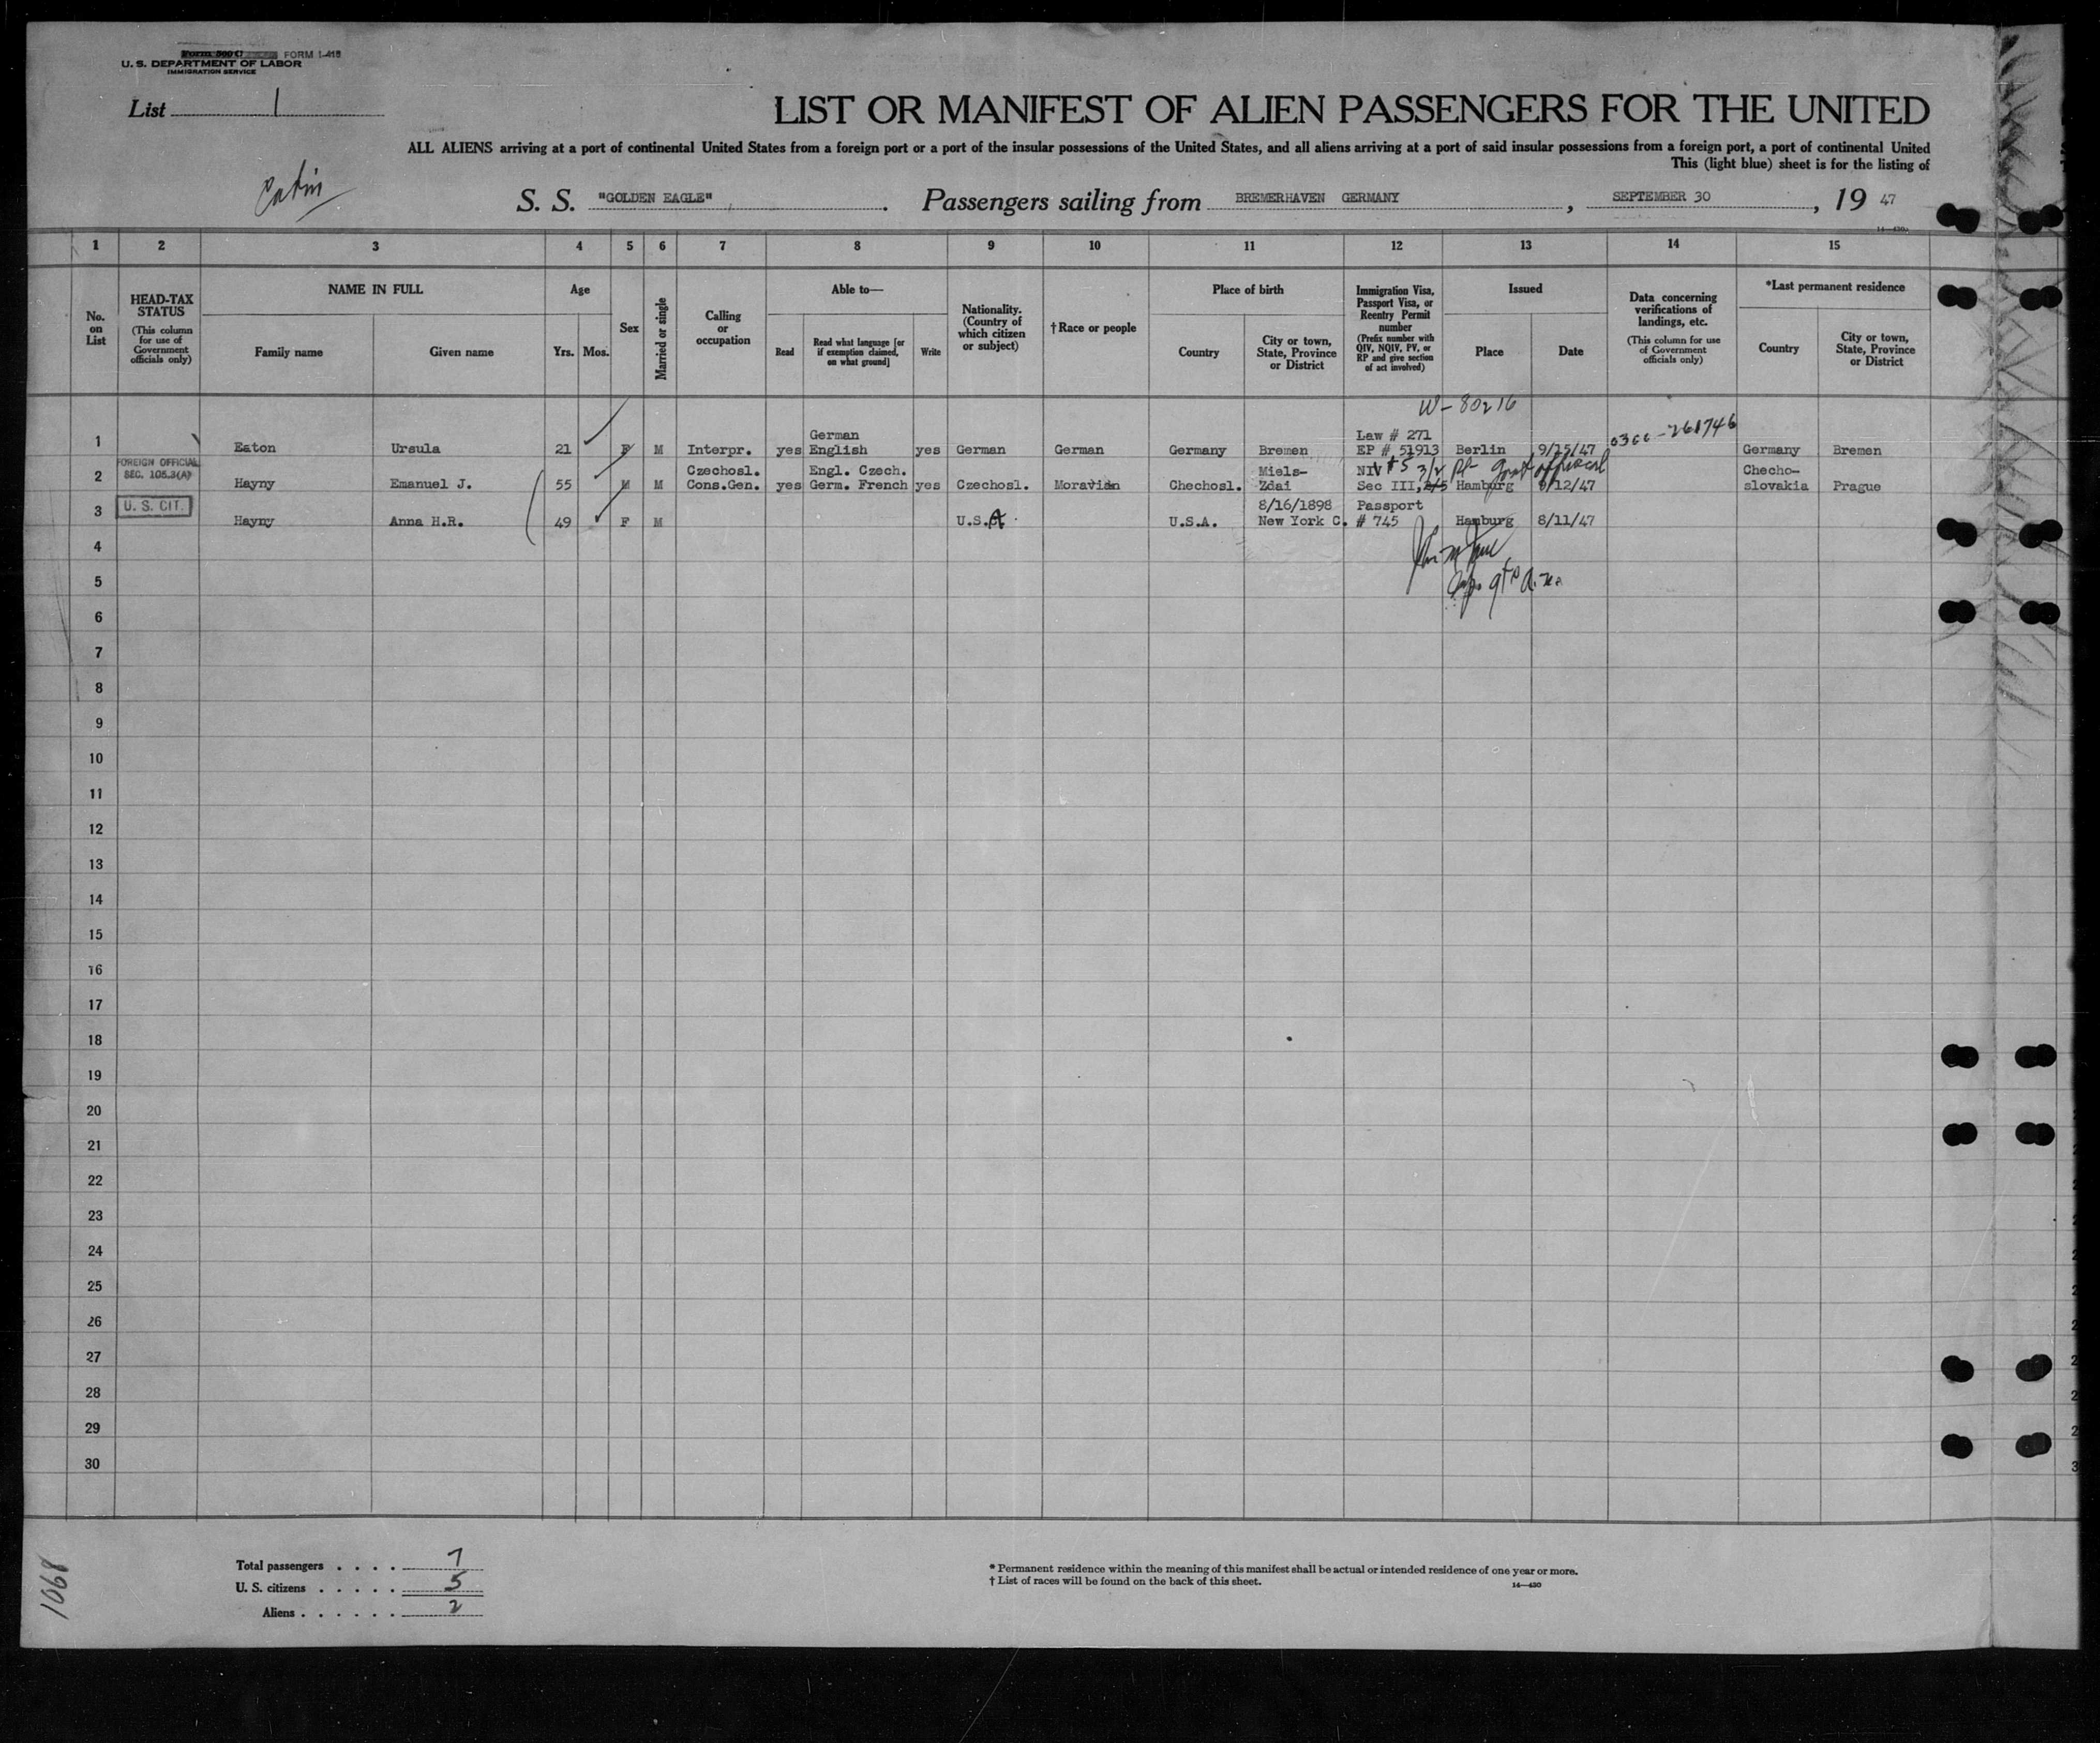 Form 500 C FORM I-415
U. S. DEPARTMENT OF LABOR
IMMIGRATION SERVICE
List 1
LIST OR MANIFEST OF ALIEN PASSENGERS FOR THE UNITED
ALL ALIENS arriving at a port of continental United States from a foreign port or a port of the insular possessions of the United States, and all aliens arriving at a port of said insular possessions from a foreign port, a port of continental United
This (light blue) sheet is for the listing of
Cabin
S. S. "GOLDEN EAGLE" . Passengers sailing from BREMERHAVEN GERMANY , SEPTEMBER 30 , 19 47
14—430
1 2 3 4 5 6 7 8 9 10 11 12 13 14 15
No. on List
HEAD-TAX STATUS
(This column for use of Government officials only)
NAME IN FULL
Family name
Given name
Age
Yrs. Mos.
Sex
Married or single
Calling or occupation
Able to—
Read
Read what language [or if exemption claimed, on what ground]
Write
Nationality. (Country of which citizen or subject)
†Race or people
Place of birth
Country
City or town, State, Province or District
Immigration Visa, Passport Visa, or Reentry Permit number
(Prefix number with QIV, NQIV, PV, or RP and give section of act involved)
Issued
Place
Date
Data concerning verifications of landings, etc.
(This column for use of Government officials only)
*Last permanent residence
Country
City or town, State, Province or District
W-80216
German Law # 271 0300-261746
1 Eaton Ursula 21 F M Interpr. yes English yes German German Germany Bremen EP # 51913 Berlin 9/15/47 Germany Bremen
FOREIGN OFFICIAL SEC. 105.3(A) Czechosl. Engl. Czech. Miels- NIV #5 3/2 Govt official Checho-
2 Hayny Emanuel J. 55 M M Cons.Gen. yes Germ. French yes Czechosl. Moravian Chechosl. Zdai Sec III, Hamburg 9/12/47 slovakia Prague
U. S. CIT. 8/16/1898 Passport
3 Hayny Anna H.R. 49 F M U.S.A. U.S.A. New York C. # 745 Hamburg 8/11/47
4
5
6
7
8
9
10
11
12
13
14
15
16
17
18
19
20
21
22
23
24
25
26
27
28
29
30
Total passengers . . . . 7
U. S. citizens . . . . . 5
Aliens . . . . . . 2
* Permanent residence within the meaning of this manifest shall be actual or intended residence of one year or more.
† List of races will be found on the back of this sheet.
14—430
1068